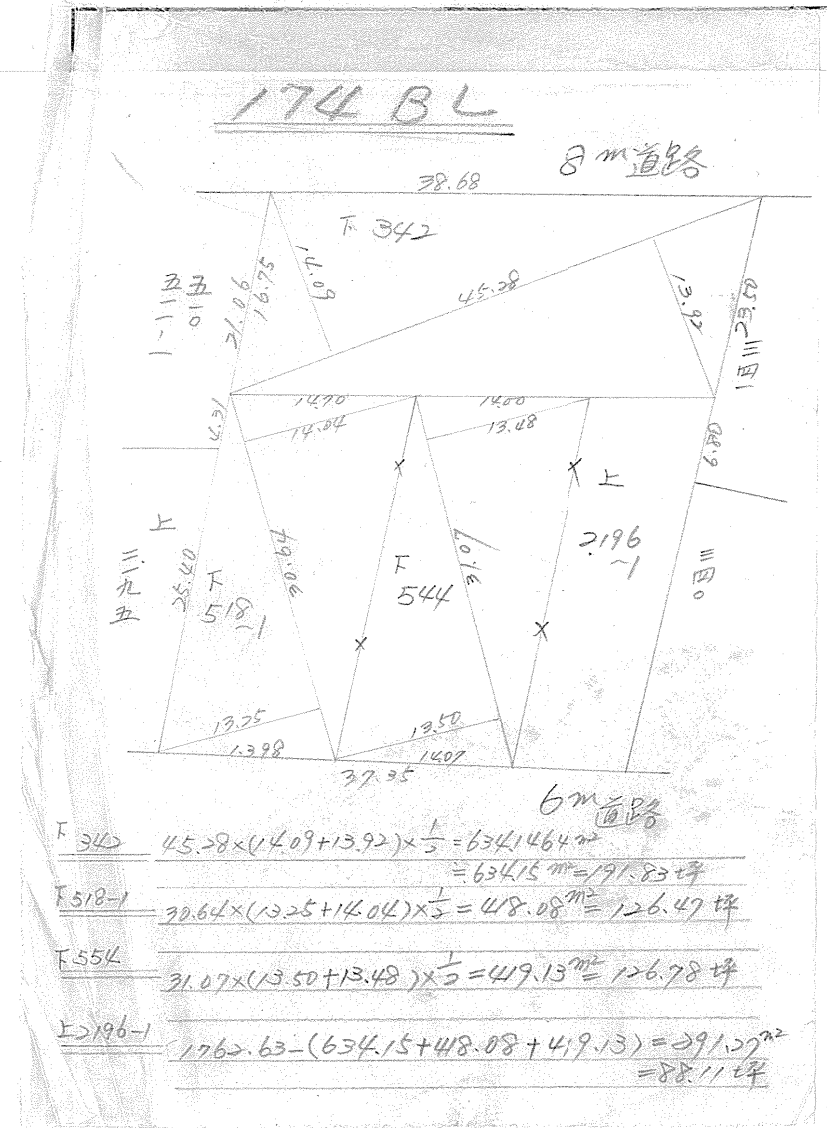 174 BL
8m道路
38.68
下 342
14.09
45.28
13.92
23.50
21.06
16.75
五一〇
五一一-1
4.31
14.70
14.04
14.00
13.48
9.80
上
25.40
下
518-1
30.64
下
544
31.07
上
2196
-1
13.25
1.398
13.50
14.07
37.35
6m道路
下 342 45.28×(14.09+13.92)×1/2=634.1464m²
≒634.15m²=191.83坪
下518-1 30.64×(13.25+14.04)×1/2=418.08m²=126.47坪
下554 31.07×(13.50+13.48)×1/2=419.13m²=126.78坪
上2196-1 1762.63-(634.15+418.08+419.13)=291.27m²
=88.11坪